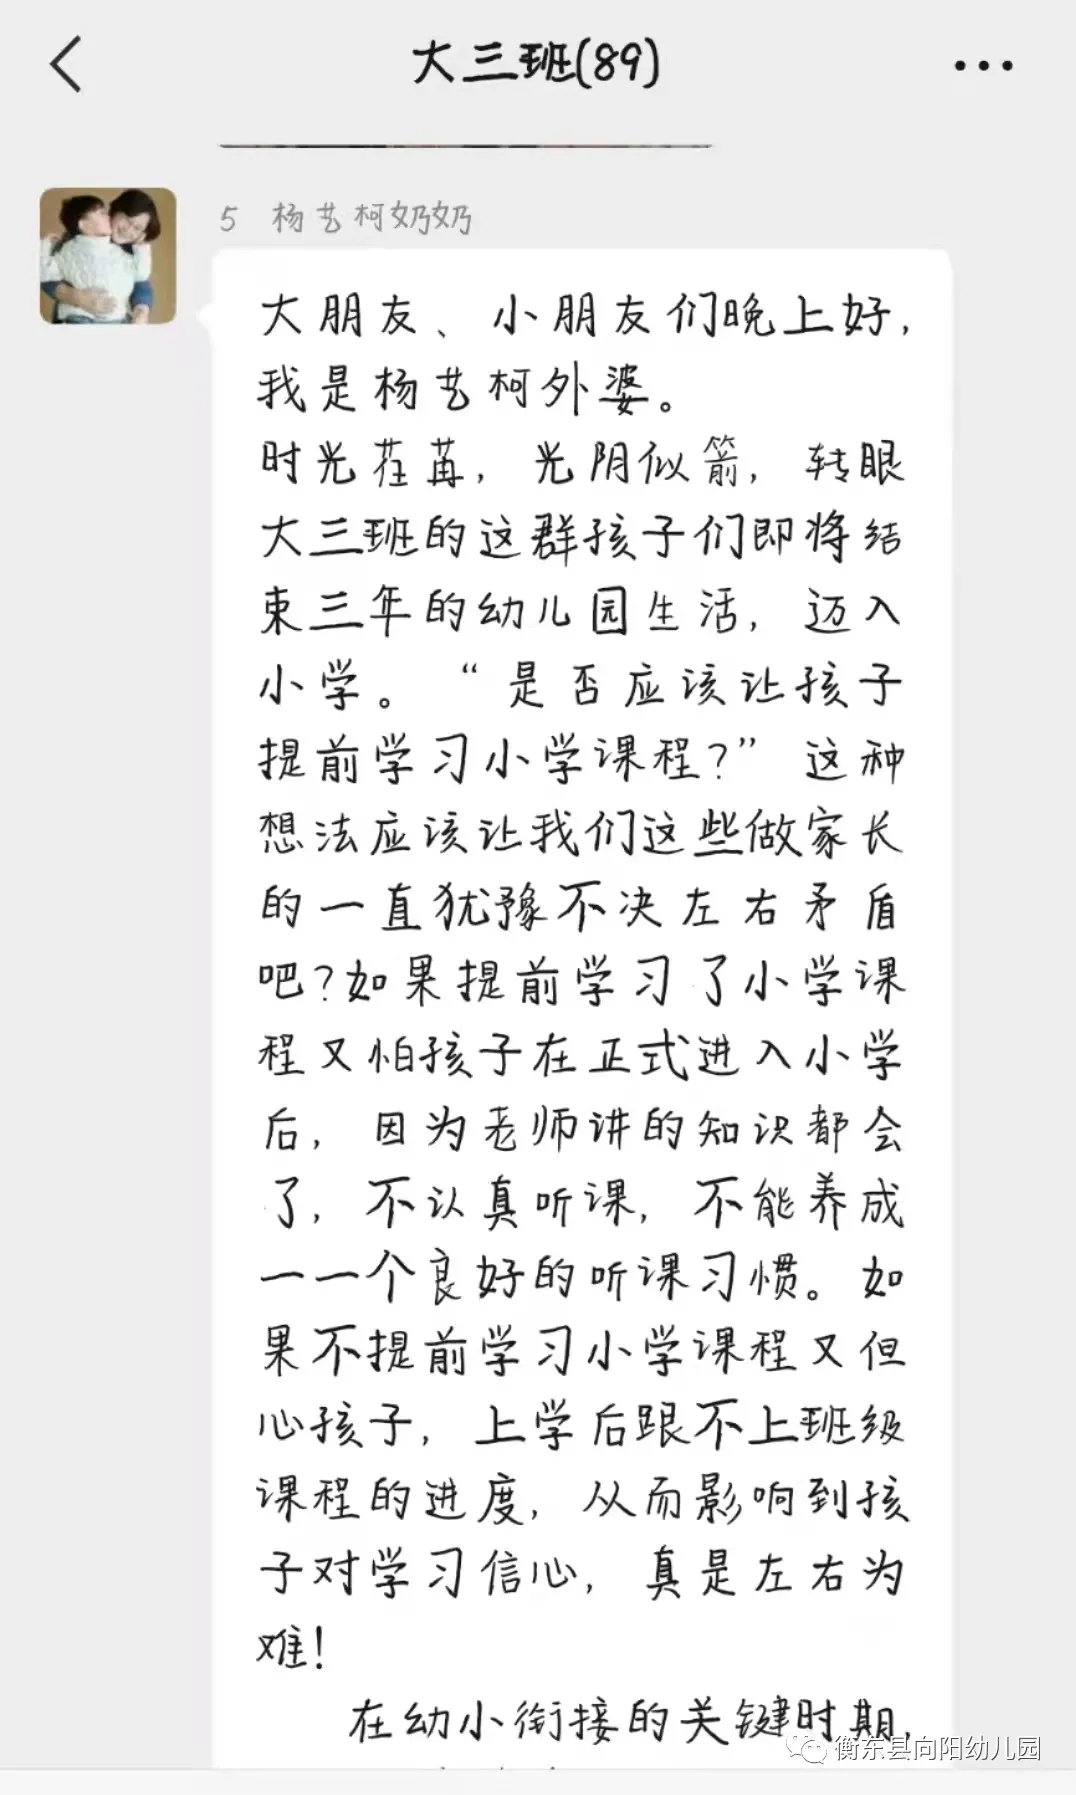 大三班(89)
5 杨艺柯奶奶
大朋友、小朋友们晚上好,
我是杨艺柯外婆。
时光荏苒,光阴似箭,转眼
大三班的这群孩子们即将结
束三年的幼儿园生活,迈入
小学。“是否应该让孩子
提前学习小学课程?”这种
想法应该让我们这些做家长
的一直犹豫不决左右矛盾
吧?如果提前学习了小学课
程又怕孩子在正式进入小学
后,因为老师讲的知识都会
了,不认真听课,不能养成
一一个良好的听课习惯。如
果不提前学习小学课程又但
心孩子,上学后跟不上班级
课程的进度,从而影响到孩
子对学习信心,真是左右为
难!
在幼小衔接的关键时期,
衡东县向阳幼儿园